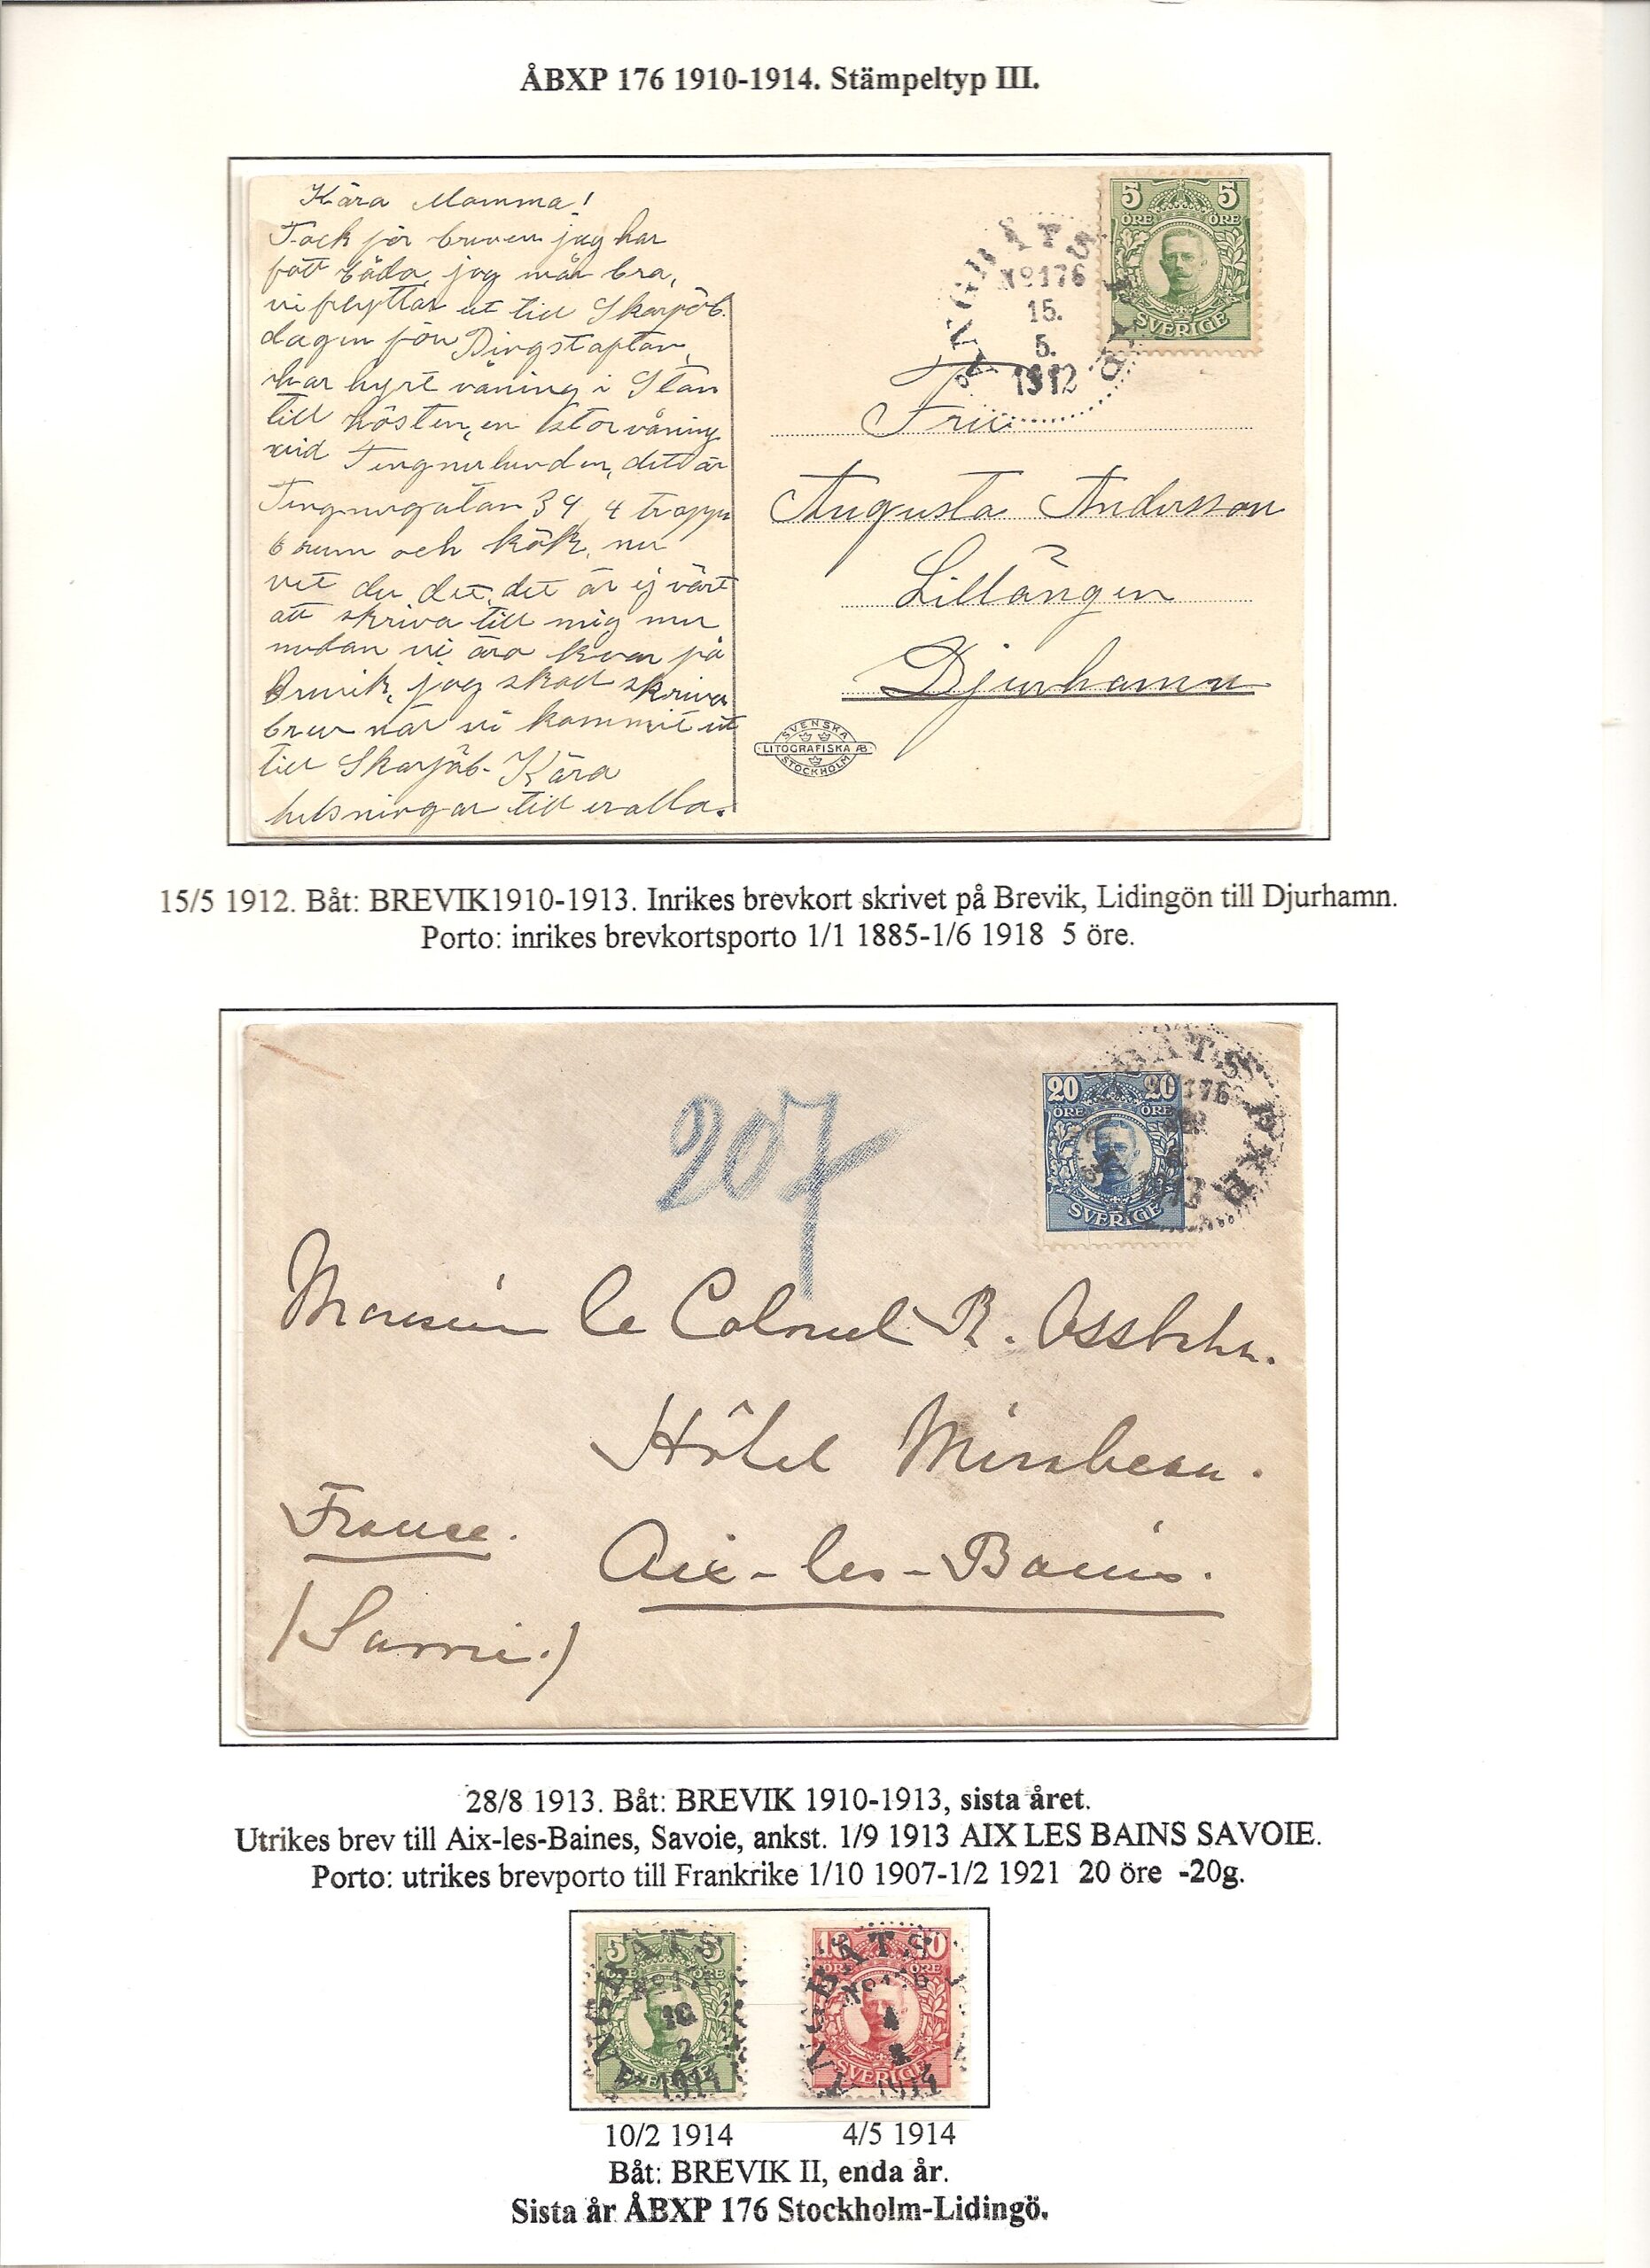 ÅBXP 176 1910-1914. Stämpeltyp III.
Kära Mamma!
Tack för breven jag har
fått båda, jag mår bra,
vi flyttar ut till Skarpöb.
dagen för Pingstaftan,
har hyrt våning i Stan
till hösten, en stor våning
vid Tengnerlunden, det är
Tengnergatan 39 4 trappu
6 rum och kök, nu
vet du det, det är ej värt
att skriva till mig mer
medan vi ära kvar på
Brevik, jag skall skriva
brev när vi kommit ut
till Skarpöb. Kära
helsningar till er alla.
ÅNGBÅTS PXP
No 176
15.
5.
1912
5 5
ÖRE ÖRE
SVERIGE
Fru
Augusta Andersson
Lillängen
Djurhamn
SVENSKA
LITOGRAFISKA AB
STOCKHOLM
15/5 1912. Båt: BREVIK1910-1913. Inrikes brevkort skrivet på Brevik, Lidingön till Djurhamn.
Porto: inrikes brevkortsporto 1/1 1885-1/6 1918 5 öre.
207
20 20
ÖRE ÖRE
SVERIGE
BÅTS PXP
176
1913
Monsieur le Colonel R.
Hôtel Mirabeau.
France. Aix-les-Bains.
(Savoie.)
28/8 1913. Båt: BREVIK 1910-1913, sista året.
Utrikes brev till Aix-les-Baines, Savoie, ankst. 1/9 1913 AIX LES BAINS SAVOIE.
Porto: utrikes brevporto till Frankrike 1/10 1907-1/2 1921 20 öre -20g.
5 5 10 10
ÖRE ÖRE
ÅNGBÅTS ÅNGBÅTS
10 4
2 5
1914 1914
SVERIGE SVERIGE
10/2 1914 4/5 1914
Båt: BREVIK II, enda år.
Sista år ÅBXP 176 Stockholm-Lidingö.